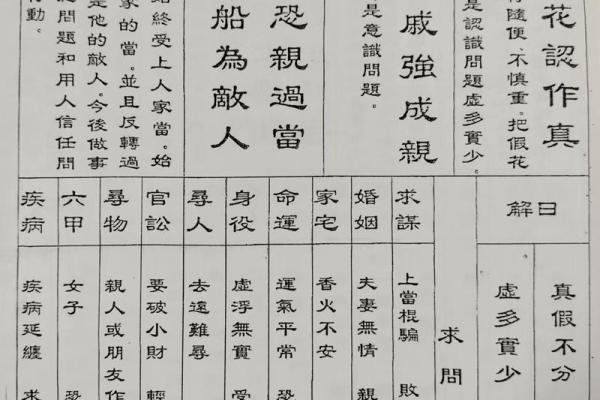 花認作真
隨便、不慎重。把假花
是認識問題虛多實少。
戚強成親
是意識問題。
恐親過當
船為敵人
終受上人家當。始
家的當。並且反轉過
是他的敵人。今後做事
問題和用人信任問
動。
日解
真假不分
虛多實少
求問
求謀
上當棍騙 敗
婚姻
夫妻無情 親
家宅
香火不安
命運
運氣平常 恐
身役
虛浮無實 受
尋人
去遠難尋
官訟
要破小財 輕
尋物
親人或朋友作
六甲
女子 恐
疾病
疾病延纏 求